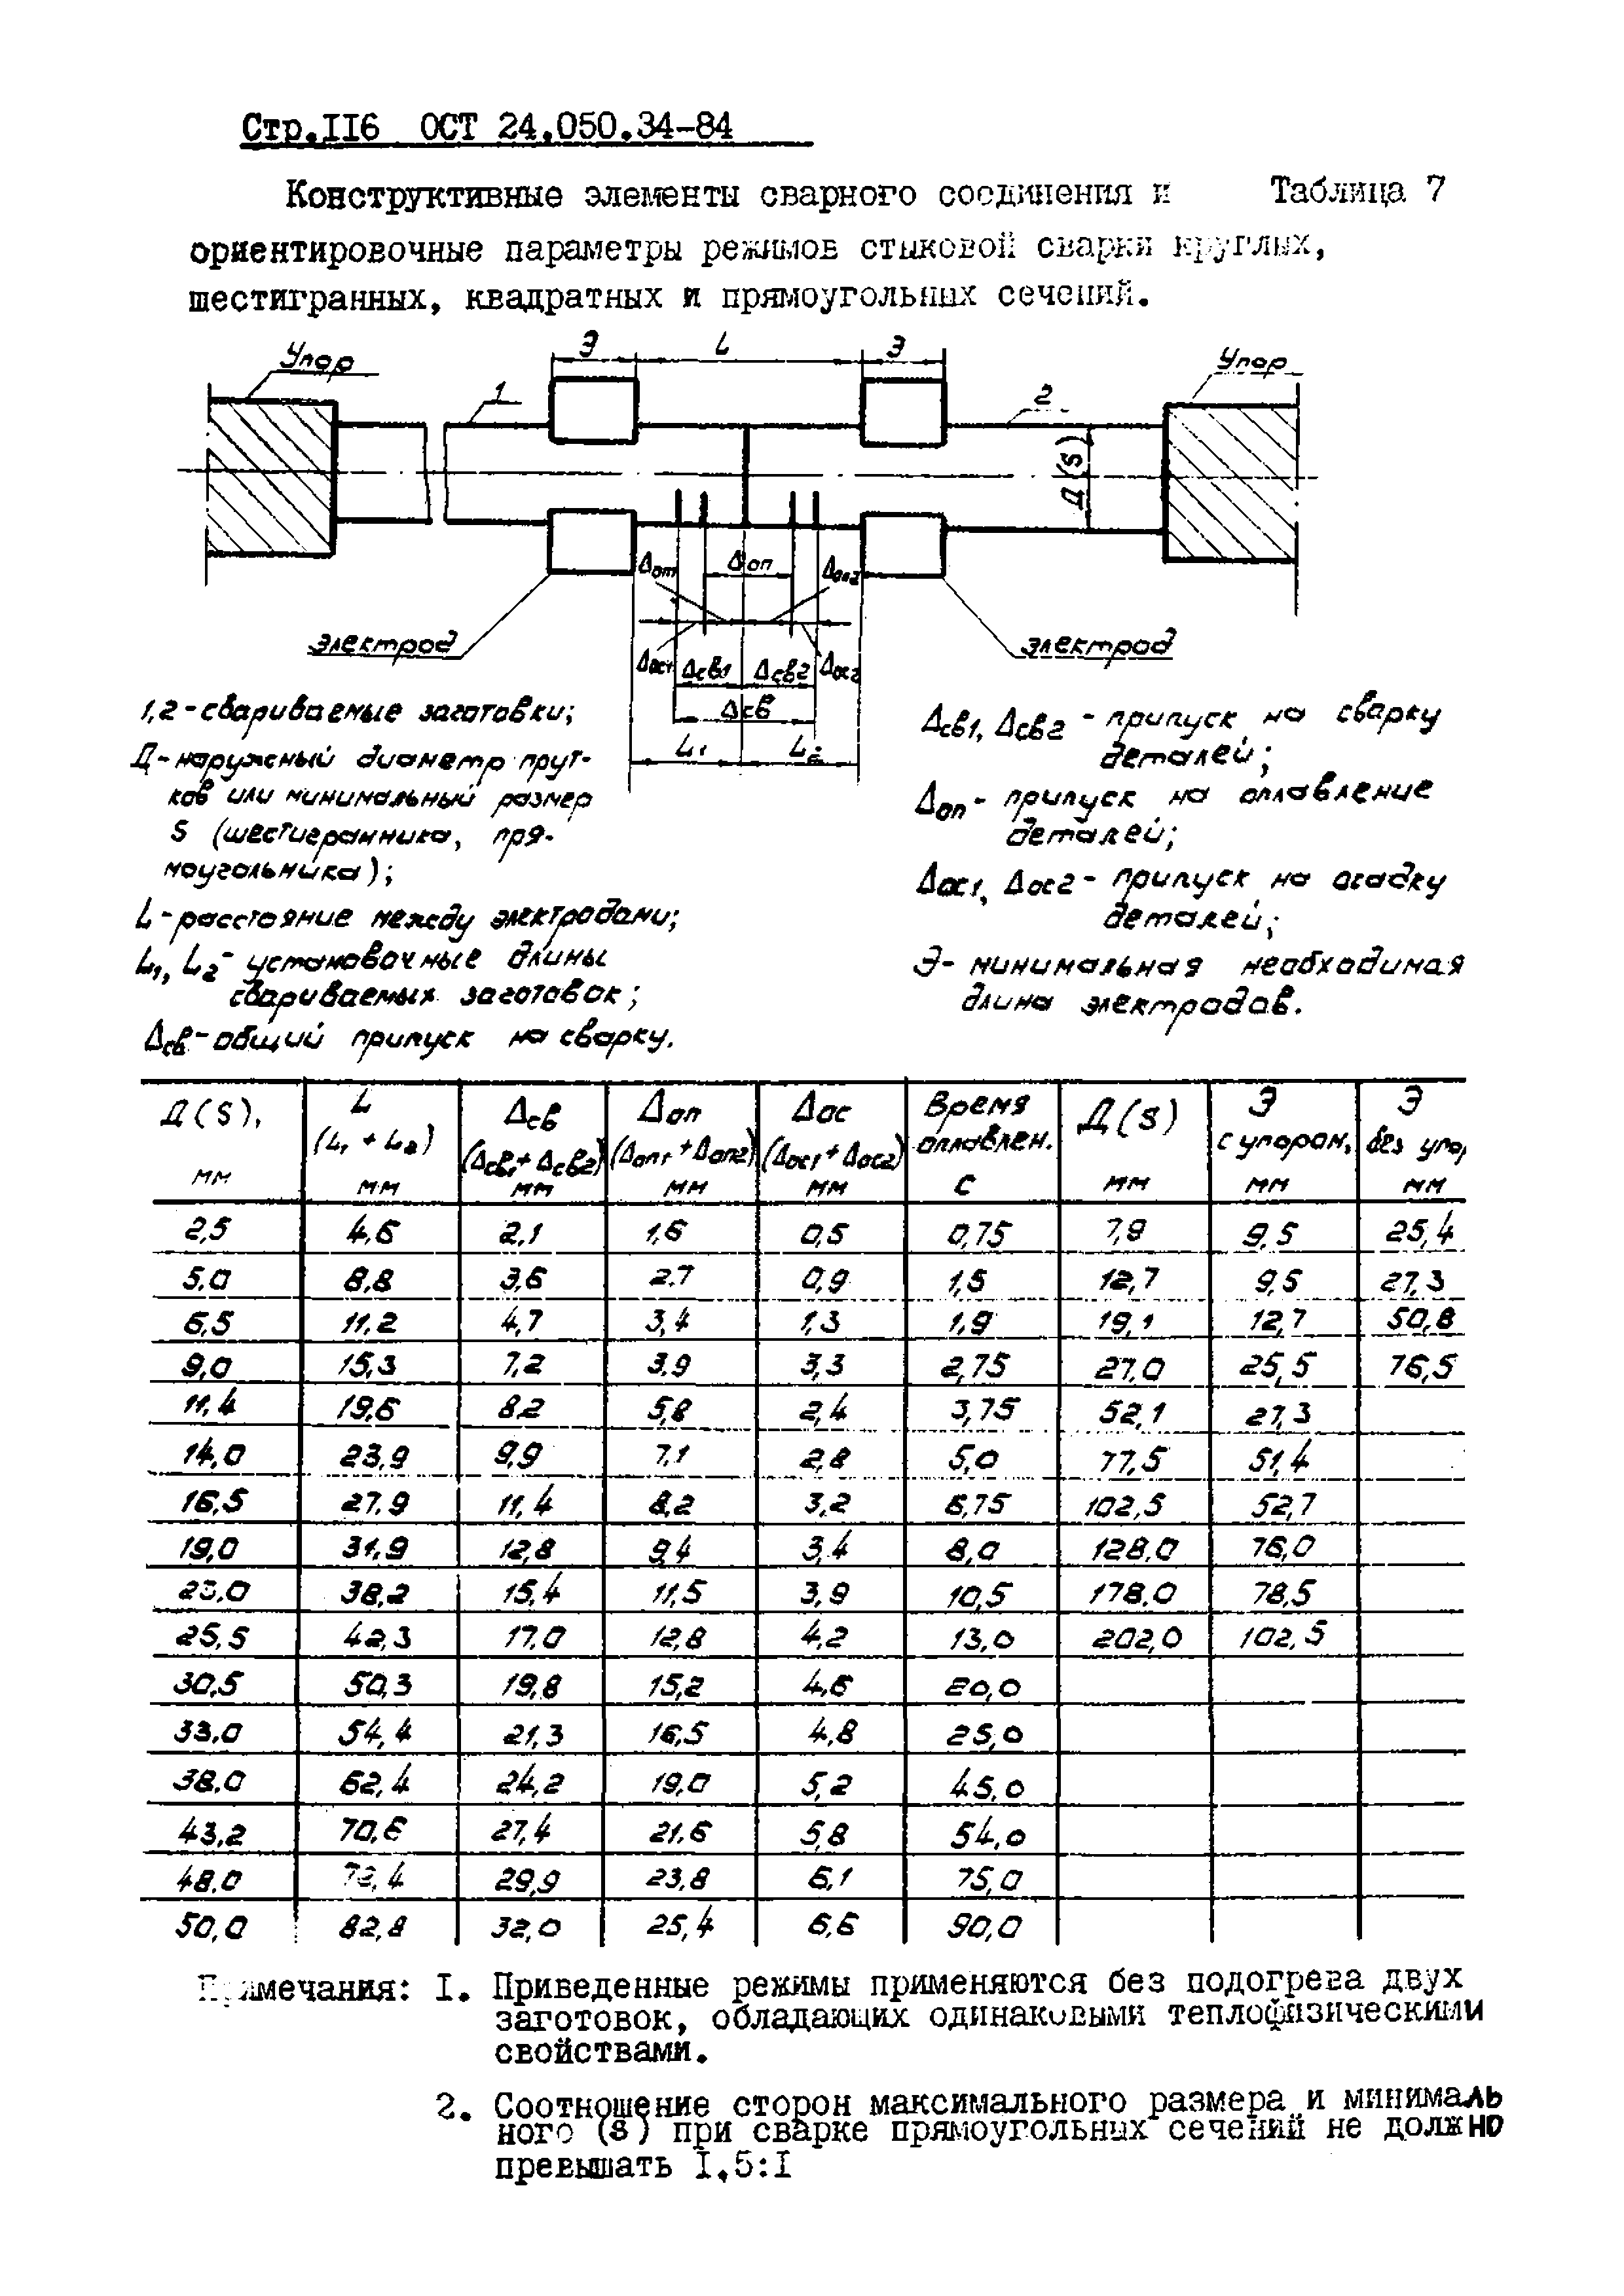 Стр.II6 ОСТ 24.050.34-84
Конструктивные элементы сварного соединения и Таблица 7
ориентировочные параметры режимов стыковой сварки круглых,
шестигранных, квадратных и прямоугольных сечений.
Э L Э
Упор 1 2 Упор
Д(S)
Δоп1 Δоп Δоп2
электрод электрод
Δос1 Δсв1 Δсв2 Δос2
Δсв
L1 L2
1,2 - свариваемые заготовки;
Д - наружный диаметр прут-
ков или минимальный размер
S (шестигранника, пря-
моугольника);
L - расстояние между электродами;
L1, L2 - установочные длины
свариваемых заготовок;
Δсв - общий припуск на сварку.
Δсв1, Δсв2 - припуск на сварку
деталей;
Δоп - припуск на оплавление
деталей;
Δос1, Δос2 - припуск на осадку
деталей;
Э - минимальная необходимая
длина электродов.
Д(S), мм | L (L1 + L2) мм | Δсв (Δсв1 + Δсв2) мм | Δоп (Δоп1 + Δоп2) мм | Δос (Δос1 + Δос2) мм | Время оплавлен. с | Д(S) мм | Э с упором, мм | Э без упо, мм
2,5 4,6 2,1 1,6 0,5 0,75 7,9 9,5 25,4
5,0 8,8 3,6 2,7 0,9 1,5 12,7 9,5 27,3
6,5 11,2 4,7 3,4 1,3 1,9 19,1 12,7 50,8
9,0 15,3 7,2 3,9 3,3 2,75 27,0 25,5 76,5
11,4 19,6 8,2 5,8 2,4 3,75 52,1 27,3
14,0 23,9 9,9 7,1 2,8 5,0 77,5 51,4
16,5 27,9 11,4 8,2 3,2 6,75 102,5 52,7
19,0 31,9 12,8 9,4 3,4 8,0 128,0 76,0
23,0 38,2 15,4 11,5 3,9 10,5 178,0 78,5
25,5 42,3 17,0 12,8 4,2 13,0 202,0 102,5
30,5 50,3 19,8 15,2 4,6 20,0
33,0 54,4 21,3 16,5 4,8 25,0
38,0 62,4 24,2 19,0 5,2 45,0
43,2 70,6 27,4 21,6 5,8 54,0
48,0 29,9 23,8 6,1 75,0
50,0 82,8 32,0 25,4 6,6 90,0
Примечания: I. Приведенные режимы применяются без подогрева двух
заготовок, обладающих одинаковыми теплофизическими
свойствами.
2. Соотношение сторон максимального размера и минималь
ного (S) при сварке прямоугольных сечений не должно
превышать I,5:I